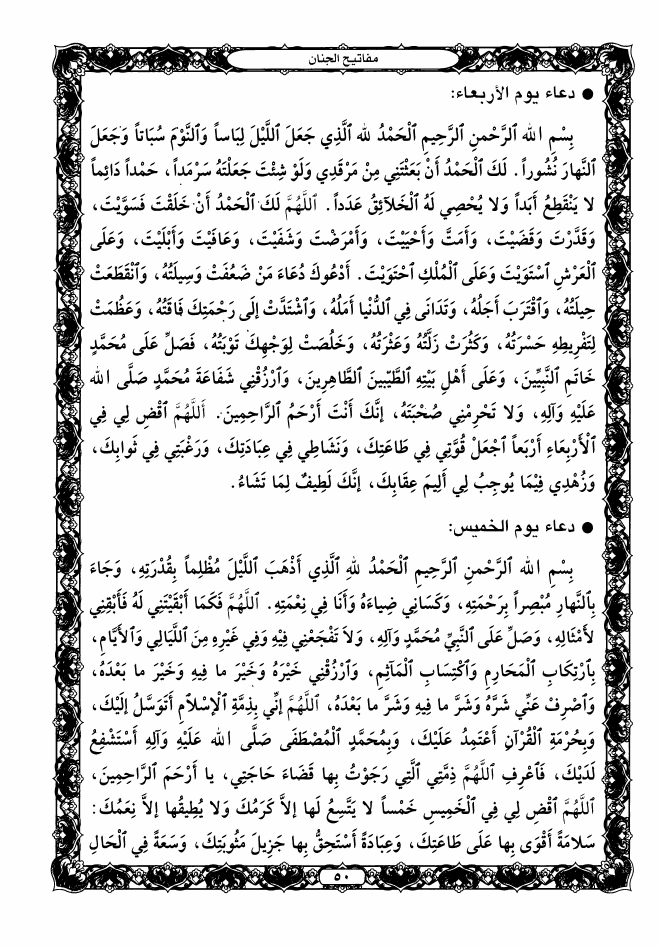 مفاتيح الجنان
● دعاء يوم الأربعاء:
بِسْمِ اللهِ ٱلرَّحْمنِ ٱلرَّحِيمِ ٱلْحَمْدُ للهِ ٱلَّذِي جَعَلَ ٱللَّيْلَ لِبَاساً وَٱلنَّوْمَ سُبَاتاً وَجَعَلَ
ٱلنَّهارَ نُشُوراً. لَكَ ٱلْحَمْدُ أَنْ بَعَثْتَنِي مِنْ مَرْقَدِي وَلَوْ شِئْتَ جَعَلْتَهُ سَرْمَداً، حَمْداً دَائِماً
لا يَنْقَطِعُ أَبَداً وَلا يُحْصِي لَهُ ٱلْخَلآئِقُ عَدَداً. اللَّهُمَّ لَكَ ٱلْحَمْدُ أَنْ خَلَقْتَ فَسَوَّيْتَ،
وَقَدَّرْتَ وَقَضَيْتَ، وَأَمَتَّ وَأَحْيَيْتَ، وَأَمْرَضْتَ وَشَفَيْتَ، وَعَافَيْتَ وَأَبْلَيْتَ، وَعَلَى
ٱلْعَرْشِ ٱسْتَوَيْتَ وَعَلَى ٱلْمُلْكِ ٱحْتَوَيْتَ. أَدْعُوكَ دُعَاءَ مَنْ ضَعُفَتْ وَسِيلَتُهُ، وَٱنْقَطَعَتْ
حِيلَتُهُ، وَٱقْتَرَبَ أَجَلُهُ، وَتَدَانَى فِي ٱلدُّنْيا أَمَلُهُ، وَٱشْتَدَّتْ إِلَى رَحْمَتِكَ فَاقَتُهُ، وَعَظُمَتْ
لِتَفْرِيطِهِ حَسْرَتُهُ، وَكَثُرَتْ زَلَّتُهُ وَعَثْرَتُهُ، وَخَلُصَتْ لِوَجْهِكَ تَوْبَتُهُ، فَصَلِّ عَلَى مُحَمَّدٍ
خَاتَمِ ٱلنَّبِيِّينَ، وَعَلَى أَهْلِ بَيْتِهِ ٱلطَّيِّبِينَ ٱلطَّاهِرِينَ، وَٱرْزُقْنِي شَفَاعَةَ مُحَمَّدٍ صَلَّى اللهُ
عَلَيْهِ وَآلِهِ، وَلا تَحْرِمْنِي صُحْبَتَهُ، إِنَّكَ أَنْتَ أَرْحَمُ ٱلرَّاحِمِينَ. أَللَّهُمَّ ٱقْضِ لِي فِي
ٱلأَرْبِعَاءِ أَرْبَعاً ٱجْعَلْ قُوَّتِي فِي طَاعَتِكَ، وَنَشَاطِي فِي عِبَادَتِكَ، وَرَغْبَتِي فِي ثَوابِكَ،
وَزُهْدِي فِيْمَا يُوجِبُ لِي أَلِيمَ عِقَابِكَ، إِنَّكَ لَطِيفٌ لِمَا تَشَاءُ.
● دعاء يوم الخميس:
بِسْمِ اللهِ ٱلرَّحْمنِ ٱلرَّحِيمِ ٱلْحَمْدُ للهِ ٱلَّذِي أَذْهَبَ ٱللَّيْلَ مُظْلِماً بِقُدْرَتِهِ، وَجَاءَ
بِٱلنَّهارِ مُبْصِراً بِرَحْمَتِهِ، وَكَسَانِي ضِيَاءَهُ وَأَنَا فِي نِعْمَتِهِ. اللَّهُمَّ فَكَمَا أَبْقَيْتَنِي لَهُ فَأَبْقِنِي
لأَمْثَالِهِ، وَصَلِّ عَلَى ٱلنَّبِيِّ مُحَمَّدٍ وَآلِهِ، وَلاَ تَفْجَعْنِي فِيْهِ وَفِي غَيْرِهِ مِنَ ٱللَّيَالِي وَٱلأَيَّامِ،
بِٱرْتِكَابِ ٱلْمَحَارِمِ وَٱكْتِسَابِ ٱلْمَآثِمِ، وَٱرْزُقْنِي خَيْرَهُ وَخَيْرَ ما فِيهِ وَخَيْرَ ما بَعْدَهُ،
وَٱصْرِفْ عَنِّي شَرَّهُ وَشَرَّ ما فِيهِ وَشَرَّ ما بَعْدَهُ، اللَّهُمَّ إِنِّي بِذِمَّةِ ٱلإِسْلاَمِ أَتَوَسَّلُ إِلَيْكَ،
وَبِحُرْمَةِ ٱلْقُرْآنِ أَعْتَمِدُ عَلَيْكَ، وَبِمُحَمَّدٍ ٱلْمُصْطَفَى صَلَّى اللهُ عَلَيْهِ وَآلِهِ أَسْتَشْفِعُ
لَدَيْكَ، فَٱعْرِفِ ٱللَّهُمَّ ذِمَّتِي ٱلَّتِي رَجَوْتُ بِها قَضَاءَ حَاجَتِي، يا أَرْحَمَ ٱلرَّاحِمِينَ،
اللَّهُمَّ ٱقْضِ لِي فِي ٱلْخَمِيسِ خَمْساً لا يَتَّسِعُ لَها إِلاَّ كَرَمُكَ وَلا يُطِيقُها إِلاَّ نِعَمُكَ:
سَلامَةً أَقْوَى بِها عَلَى طَاعَتِكَ، وَعِبَادَةً أَسْتَحِقُّ بِها جَزِيلَ مَثُوبَتِكَ، وَسَعَةً فِي ٱلْحَالِ
٥٠